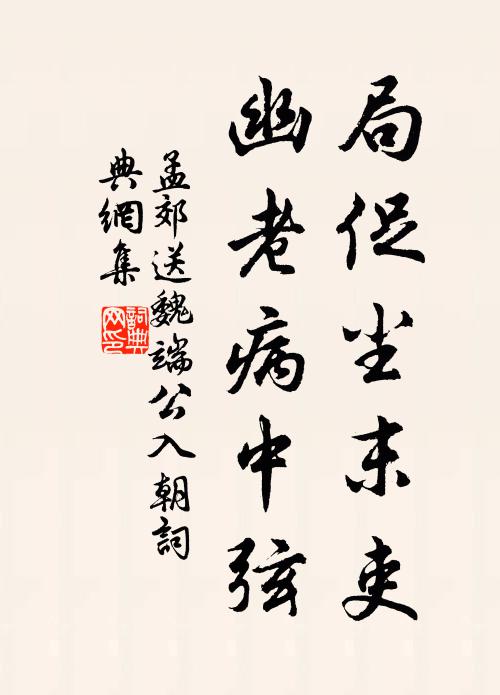 局促尘末吏
幽老病中弦
孟郊送魏端公入朝詞
典網集
詞典
网印